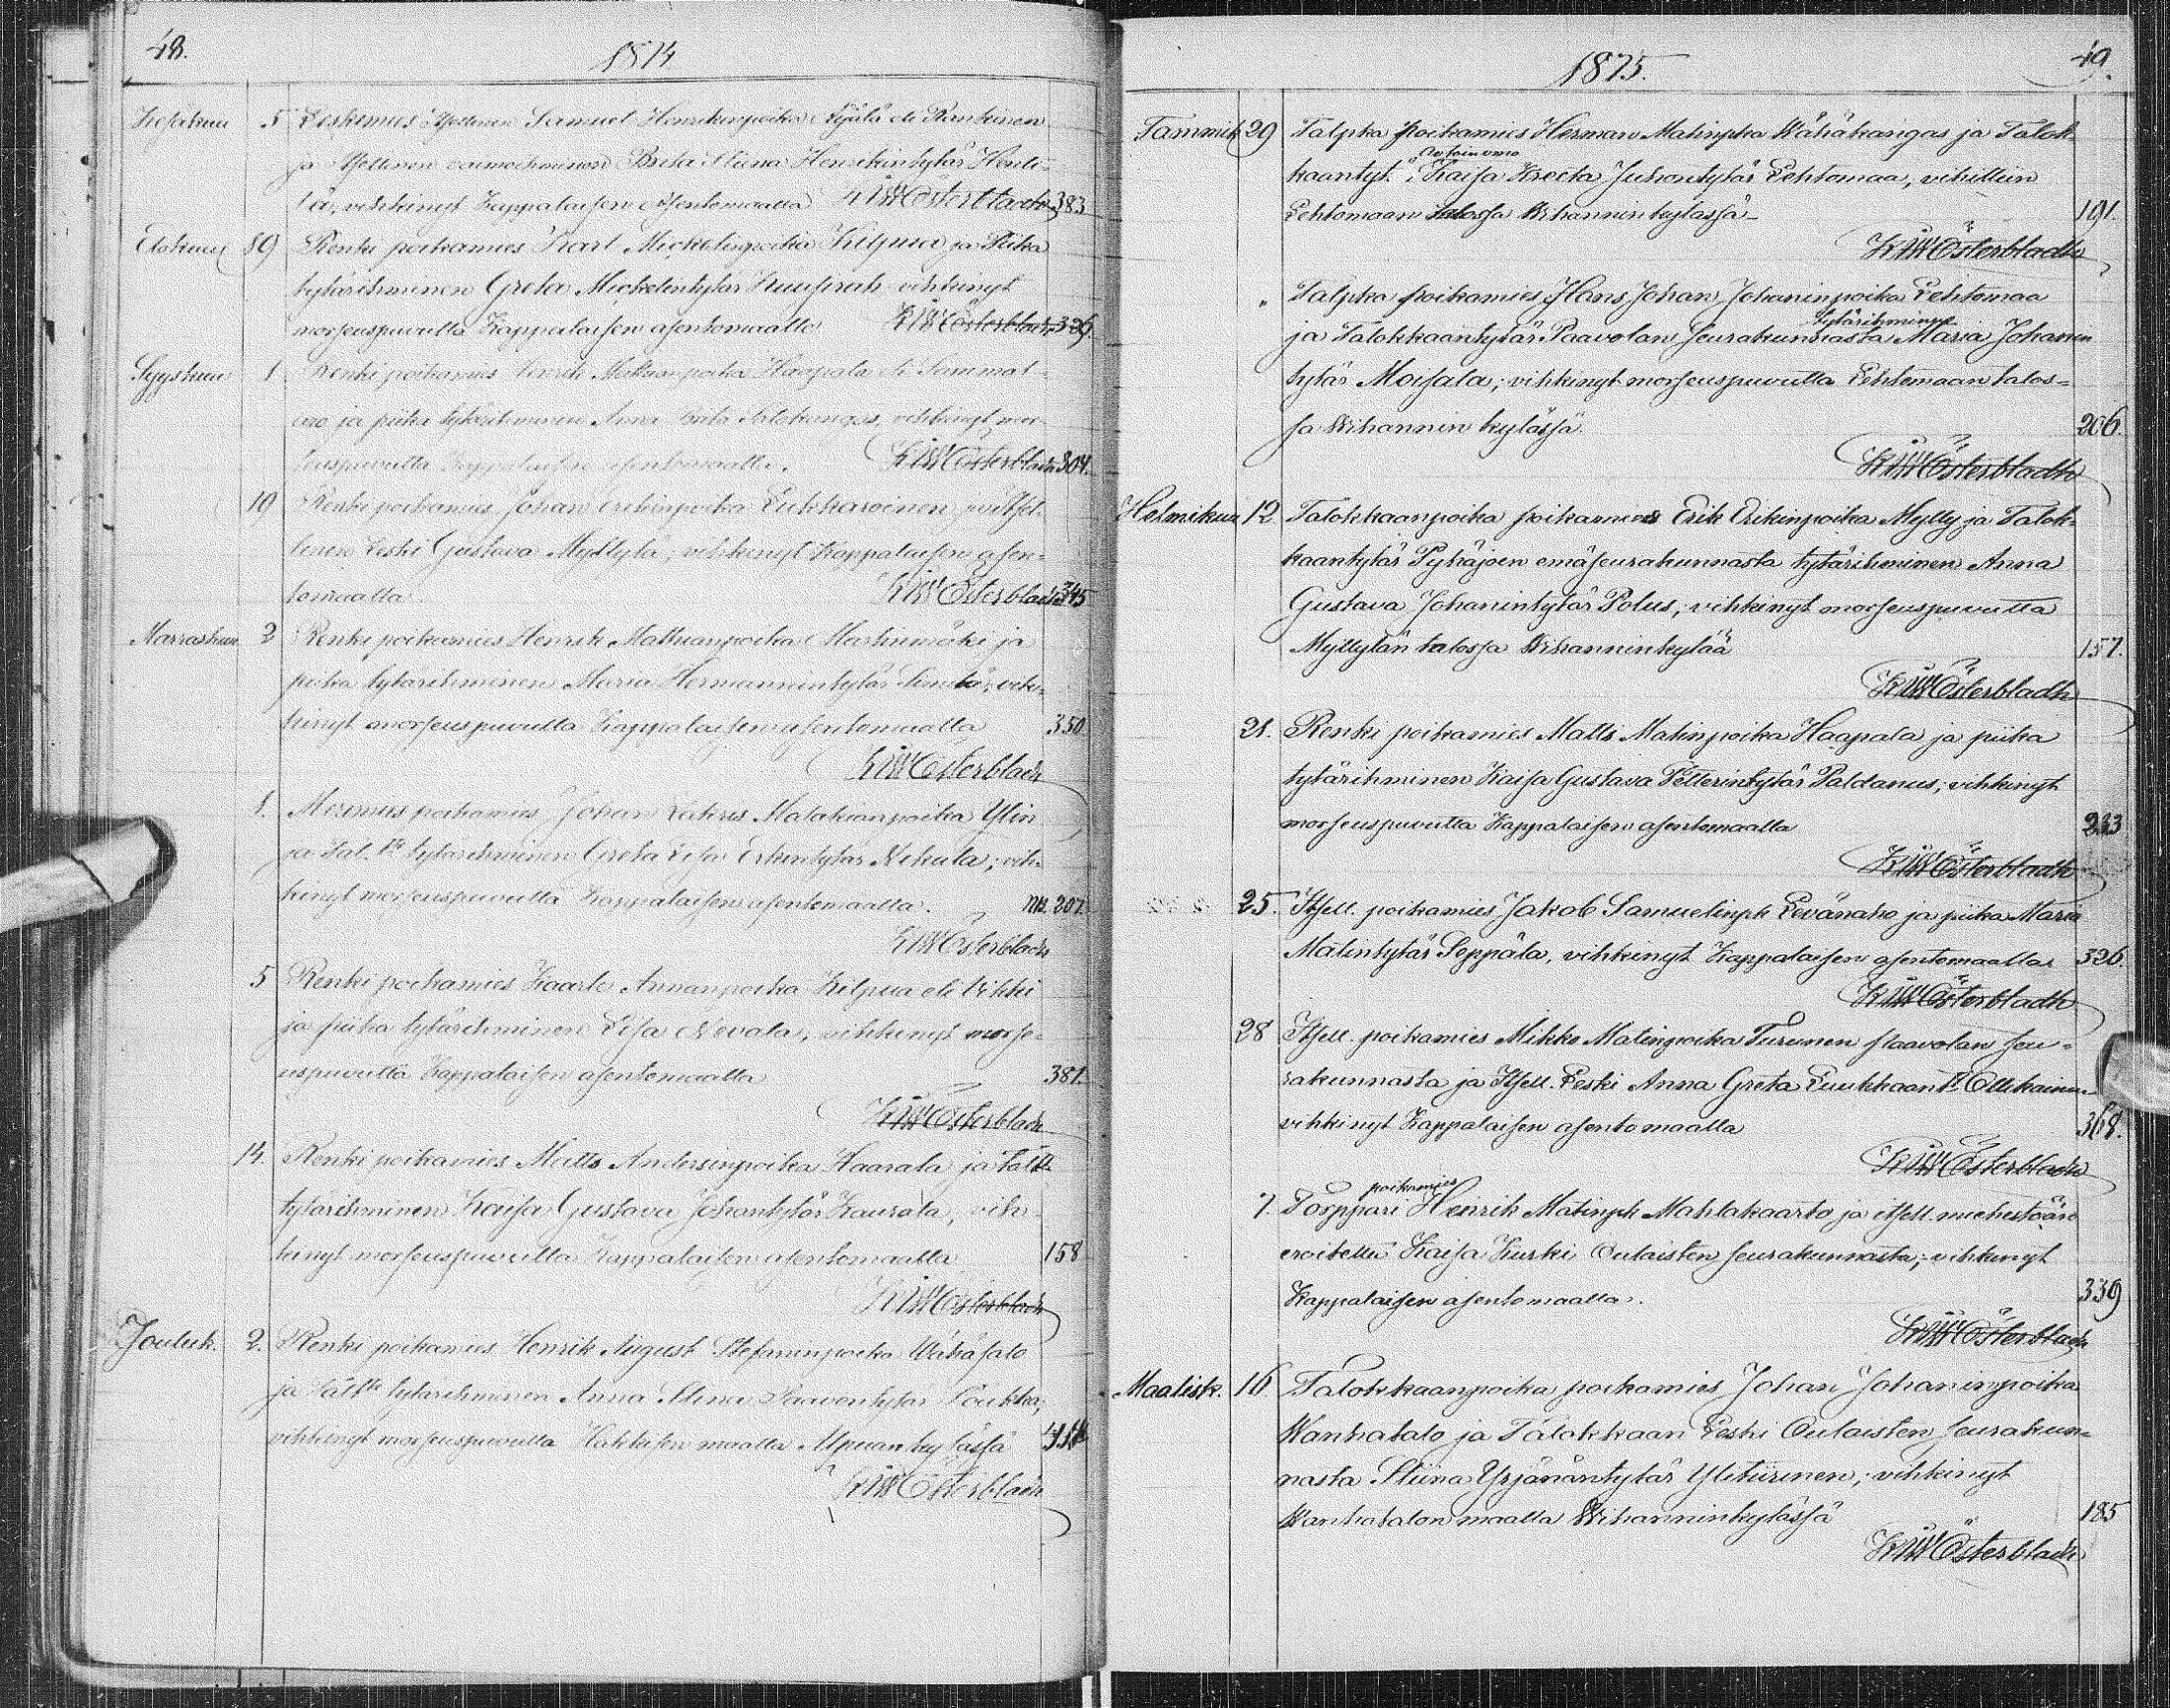 48.
1874
Kesäkuu 5 Leskimies Itsellinen Samuel Henrikinpoika Kyölä eli Rankinen
ja Itsellinen vaimoihminen Brita Stiina Henrikintytär Hentu-
la, vihkinyt Kappalaisen asentomaalla KWÖsterbladh 383
Elokuu 89 Renki poikamies Karl Mickelinpoika Kilpua ja Piika
tytärihminen Greta Mickelintytär vihkinyt
morseuspuvulla Kappalaisen asentomaalla KWÖsterbladh 326.
Syyskuu 1 Renki poikamies Henrik Matinpoika Haapala eli Sammal-
ja piika tytärihminen Anna Talokangas, vihkinyt mor-
seuspuvulla Kappalaisen asentomaalla. KWÖsterbladh 304.
19 Renki poikamies Johan Erikinpoika Lukkaroinen ja Itsel-
linen Leski Gustava Myllylä; vihkinyt Kappalaisen asen-
tomaalla KWÖsterbladh 345
Marraskuu 2 Renki poikamies Henrik Matinpoika Martinmäki ja
piika tytärihminen Maria Hermannintytär vih-
kinyt morseuspuvulla Kappalaisen asentomaalla 350
KWÖsterbladh
1. Merimies poikamies Johan Malakianpoika Ylin
ja Tal. tr tytärihminen Greta Lisa Erkintytär Nikula; vih-
kinyt morseuspuvulla Kappalaisen asentomaalla. 207
KWÖsterbladh
5 Renki poikamies Kaarle Annanpoika Kilpua eli Vikki
ja piika tytärihminen Lisa Nevala; vihkinyt morse-
uspuvulla Kappalaisen asentomaalla 381.
KWÖsterbladh
14. Renki poikamies Matts Andersinpoika Haarala ja Taltr
tytärihminen Kaisa Gustava Johantytär Kaurala; vih-
kinyt morseuspuvulla Kappalaisen asentomaalla 158
KWÖsterbladh
Jouluk. 2. Renki poikamies Henrik August Stefaninpoika Wähäsalo
ja Taltr tytärihminen Anna Stina Paavontytär Loukka;
vihkinyt morseuspuvulla Hakkisen maalla Alpuan kylässä
KWÖsterbladh
1875. 49.
Tammik 29 Talpka poikamies Herman Matinpka Wähäkangas ja Talok-
kaantyt. Kaisa Kreeta Juhontytär Lehtomaa, vihittiin
Lehtomaan talossa Wihannin kylässä 191.
KWÖsterbladh
" Talpka poikamies Hans Johan Johaninpoika Lehtomaa
tytärihminen
ja Talokkaantytär Paavolan seurakunnasta Maria Johanin
tytär Moisala; vihkinyt morseuspuvulla Lehtomaan talos-
sa Wihannin kylässä 206.
KWÖsterbladh
Helmikuu 12. Talokkaanpoika poikamies Erik Erikinpoika Mylly ja Talok-
kaantytär Pyhäjoen emäseurakunnasta tytärihminen Anna
Gustava Johanintytär Polus; vihkinyt morseuspuvulla
Myllylän talossa Wihanninkylää 157.
KWÖsterbladh
21. Renki poikamies Matts Matinpoika Haapala ja piika
tytärihminen Kaisa Gustava Petterintytär Paldanus; vihkinyt
morseuspuvulla Kappalaisen asentomaalla 233
KWÖsterbladh
25. Itsell. poikamies Jakob Samuelinpk Levänaho ja piika Maria
Matintytär Seppäla, vihkinyt Kappalaisen asentomaalla 326.
KWÖsterbladh
28 Itsell. poikamies Mikko Matinpoika Turunen Paavolan seu-
rakunnasta ja Itsell. Leski Anna Greta Luukkaantr Ollikainen
vihkinyt Kappalaisen asentomaalla 368.
KWÖsterbladh
poikamies
". Torppari Heinrik Matinpk Mahlakaarto ja itsell. miehestään
eroitettu Kaisa Kurki Oulaisten seurakunnasta; vihkinyt
Kappalaisen asentomaalla. 339
KWÖsterbladh
Maalisk. 16 Talokkaanpoika poikamies Johan Johaninpoika
Wanhatalo ja Talokkaan Leski Oulaisten seurakun-
nasta Stiina Yrjänäntytär Ylitiirinen; vihkinyt
Wanhatalon maalla Wihanninkylässä 185
KWÖsterbladh